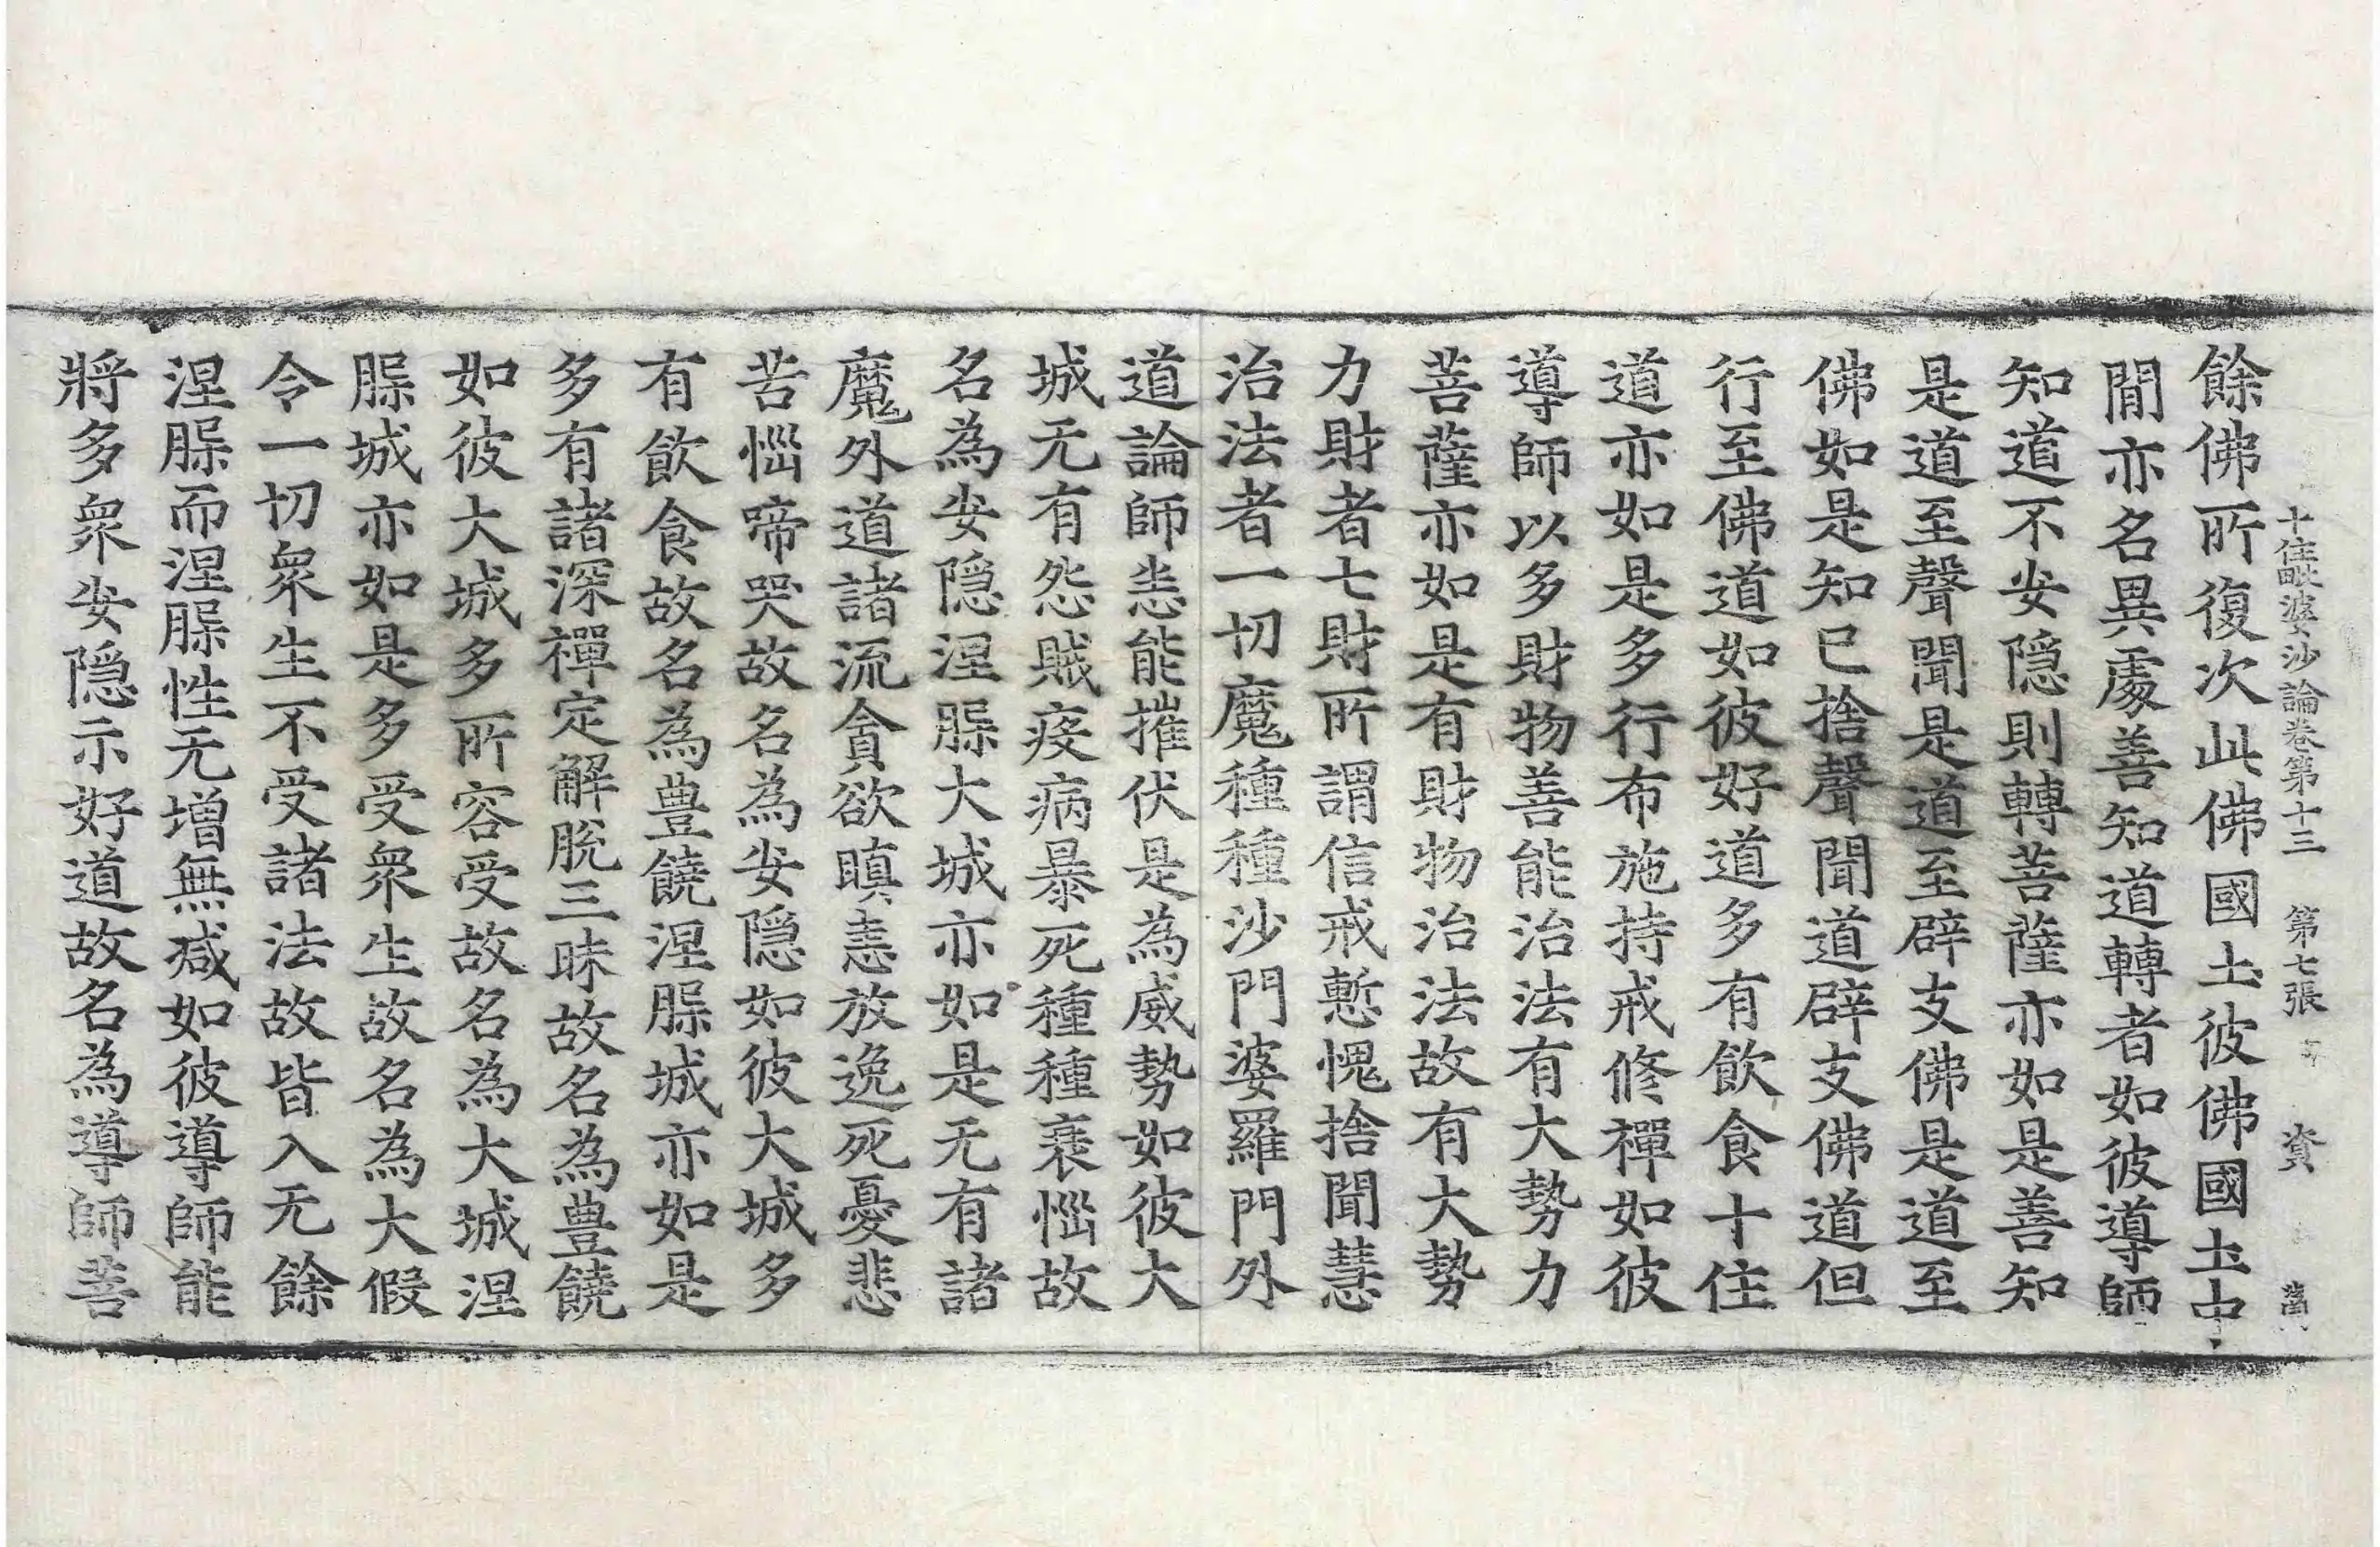 餘佛所復次此佛國土彼佛國土中
十住毗婆沙論卷第十三 第七張 資
間亦名異處善知道轉者如彼導師
知道不安隱則轉菩薩亦如是善知
是道至聲聞是道至辟支佛是道至
佛如是知已捨聲聞道辟支佛道但
行至佛道如彼好道多有飲食十住
道亦如是多行布施持戒修禪如彼
導師以多財物善能治法有大勢力
菩薩亦如是有財物治法故有大勢
力財者七財所謂信戒慙愧捨聞慧
治法者一切魔種種沙門婆羅門外
道論師恙能摧伏是為威勢如彼大
城无有怨賊疫病暴死種種衰惱故
名為安隱涅槃大城亦如是无有諸
魔外道諸流貪欲瞋恚放逸死憂悲
苦惱啼哭故名為安隱如彼大城多
有飲食故名為豊饒涅槃城亦如是
多有諸深禪定解脫三昧故名為豊饒
如彼大城多所容受故名為大城涅
槃城亦如是多受眾生故名為大假
令一切眾生不受諸法故皆入无餘
涅槃而涅槃性无增無减如彼導師能
將多眾安隱示好道故名為導師菩